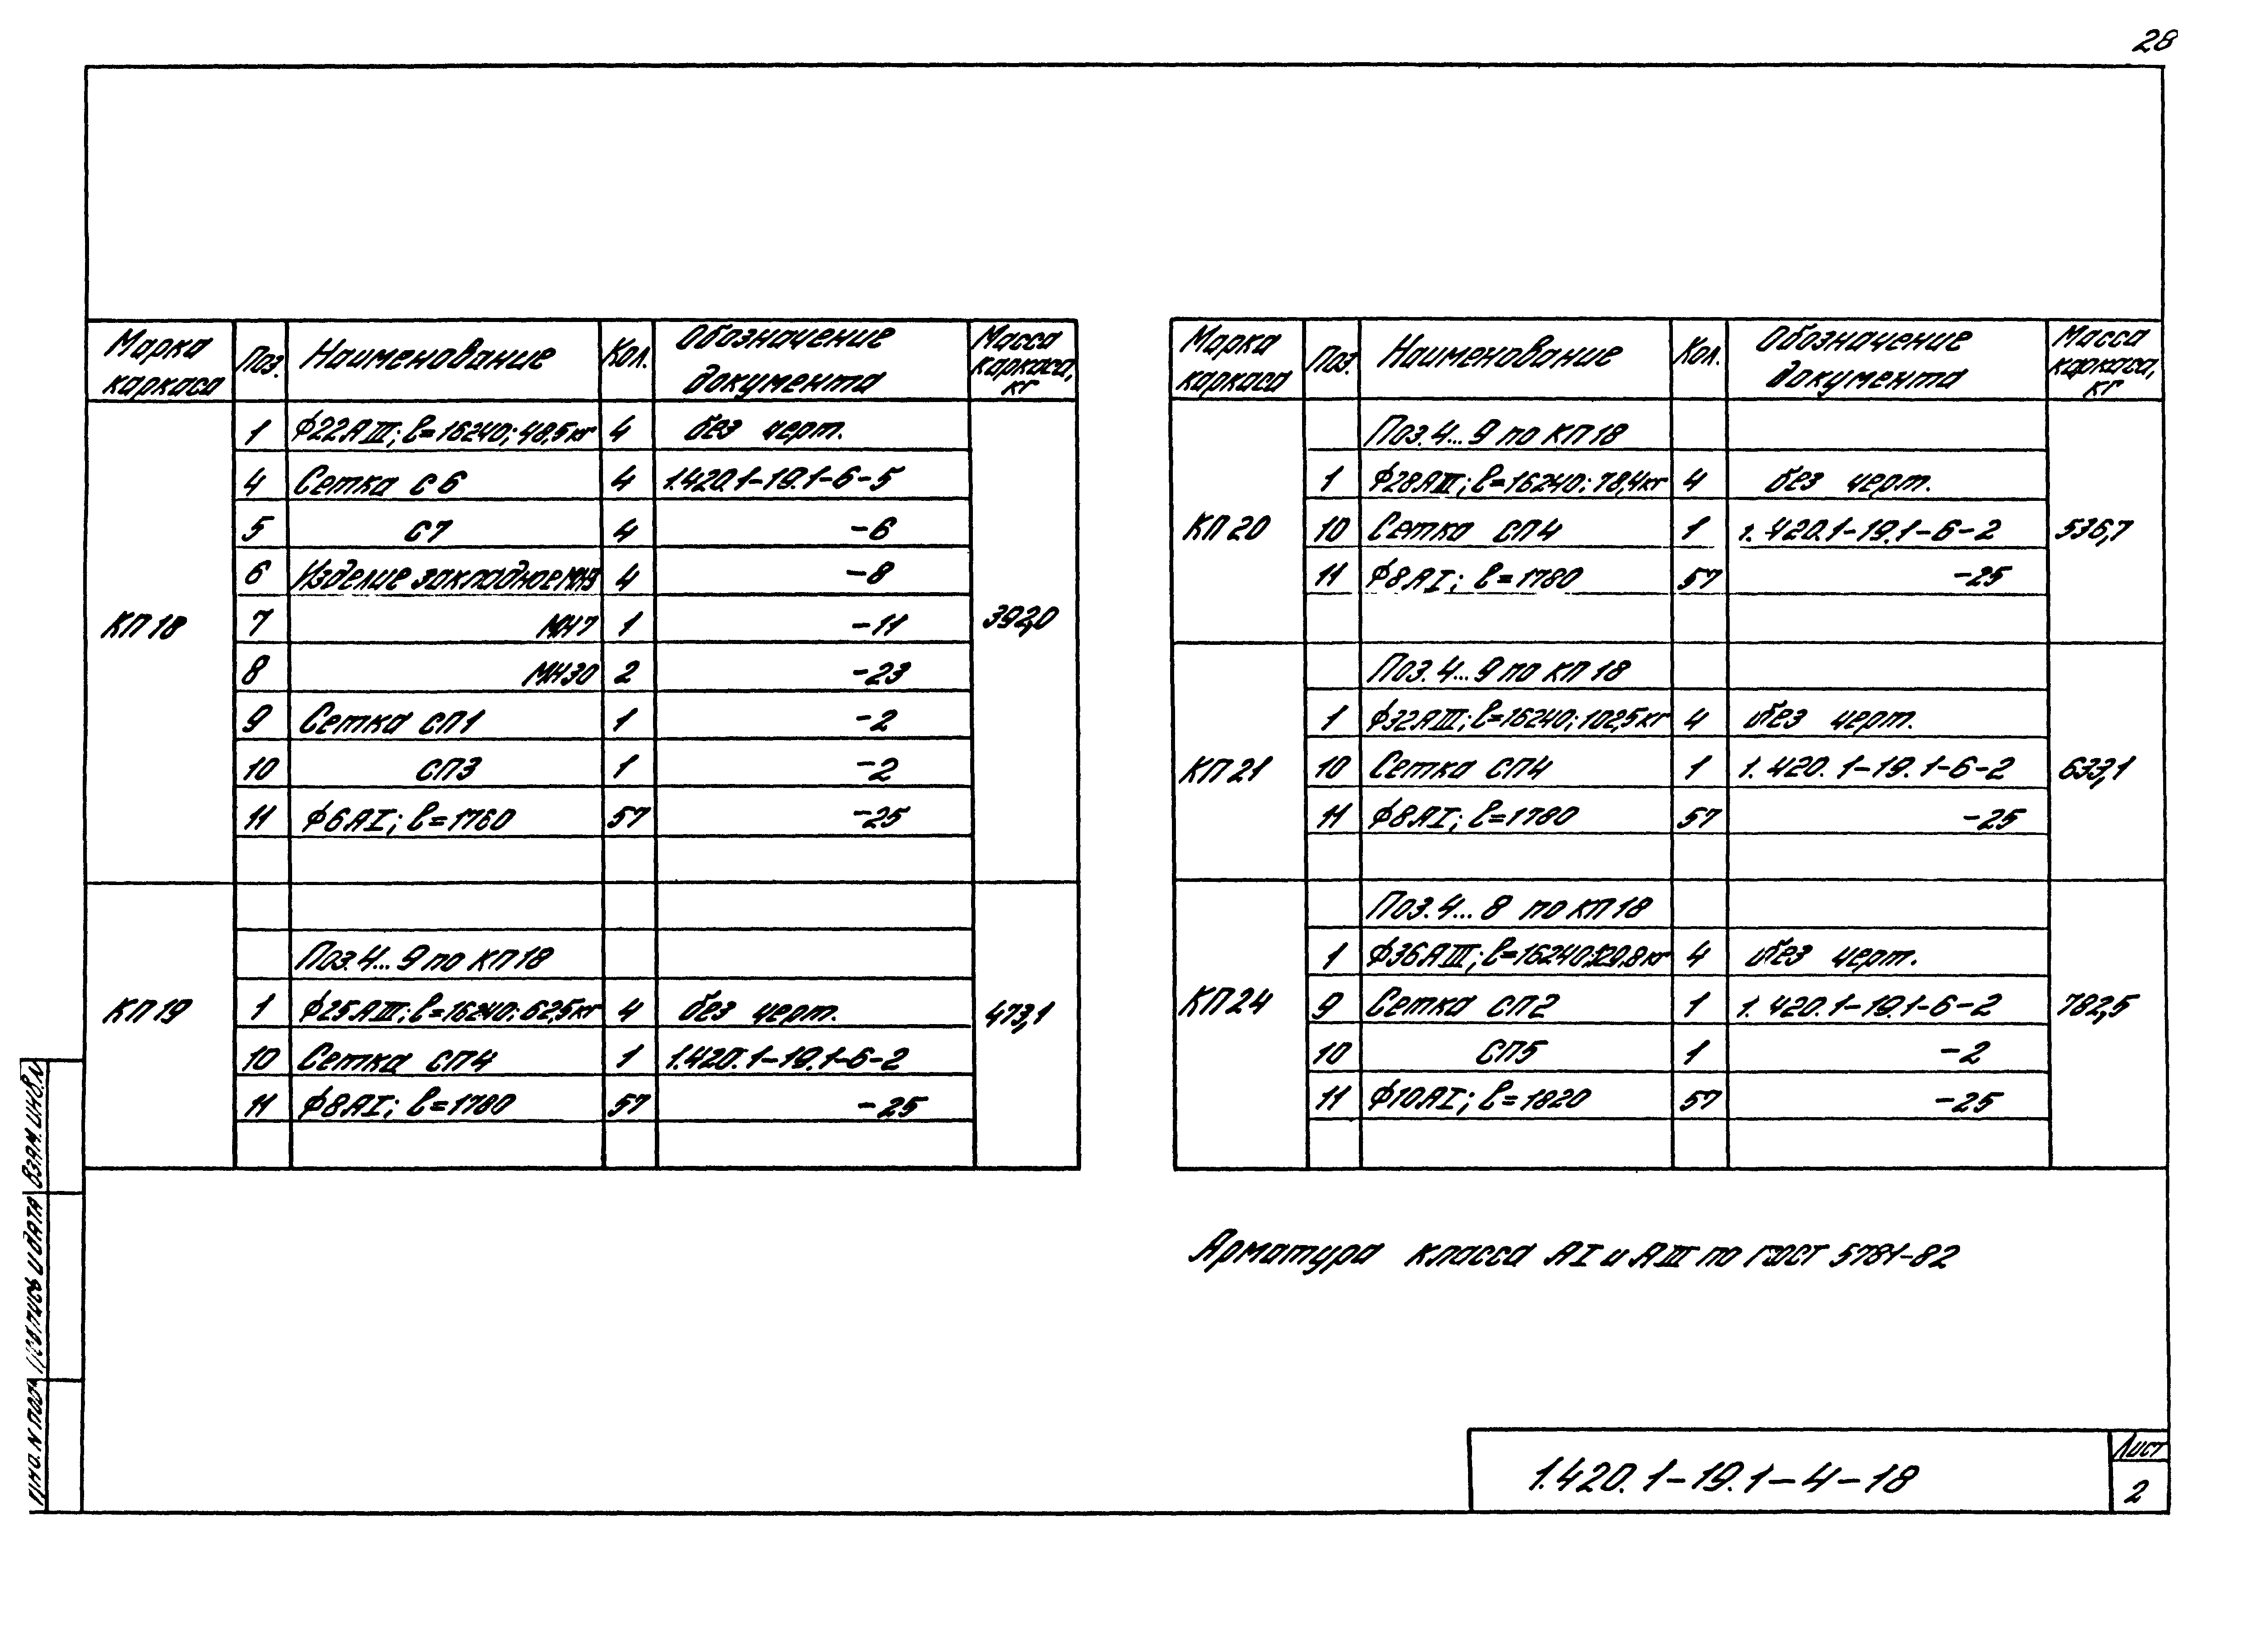 28
Марка каркаса Поз. Наименование Кол. Обозначение документа Масса каркаса, кг
КП18 392,0
1 Ф22АIII; ℓ=16240; 48,5кг 4 без черт.
4 Сетка С6 4 1.420.1-19.1-6-5
5 С7 4 -6
6 Изделие закладное 4 -8
7 МН7 1 -11
8 МН30 2 -23
9 Сетка СП1 1 -2
10 СП3 1 -2
11 Ф6АI; ℓ=1760 57 -25
КП19 473,1
Поз.4...9 по КП18
1 Ф25АIII; ℓ=16240; 62,5кг 4 без черт.
10 Сетка СП4 1 1.420.1-19.1-6-2
11 Ф8АI; ℓ=1780 57 -25
Марка каркаса Поз. Наименование Кол. Обозначение документа Масса каркаса, кг
КП20 536,7
Поз.4...9 по КП18
1 Ф28АIII; ℓ=16240; 78,4кг 4 без черт.
10 Сетка СП4 1 1.420.1-19.1-6-2
11 Ф8АI; ℓ=1780 57 -25
КП21 633,1
Поз.4...9 по КП18
1 Ф32АIII; ℓ=16240; 102,5кг 4 без черт.
10 Сетка СП4 1 1.420.1-19.1-6-2
11 Ф8АI; ℓ=1780 57 -25
КП24 782,5
Поз.4...8 по КП18
1 Ф36АIII; ℓ=16240; 129,8кг 4 без черт.
9 Сетка СП2 1 1.420.1-19.1-6-2
10 СП5 1 -2
11 Ф10АI; ℓ=1820 57 -25
Арматура класса АI и АIII по ГОСТ 5781-82
ВЗАМ. ИНВ. N
ПОДПИСЬ И ДАТА
ИНВ. N ПОДЛ
1.420.1-19.1-4-18
Лист
2